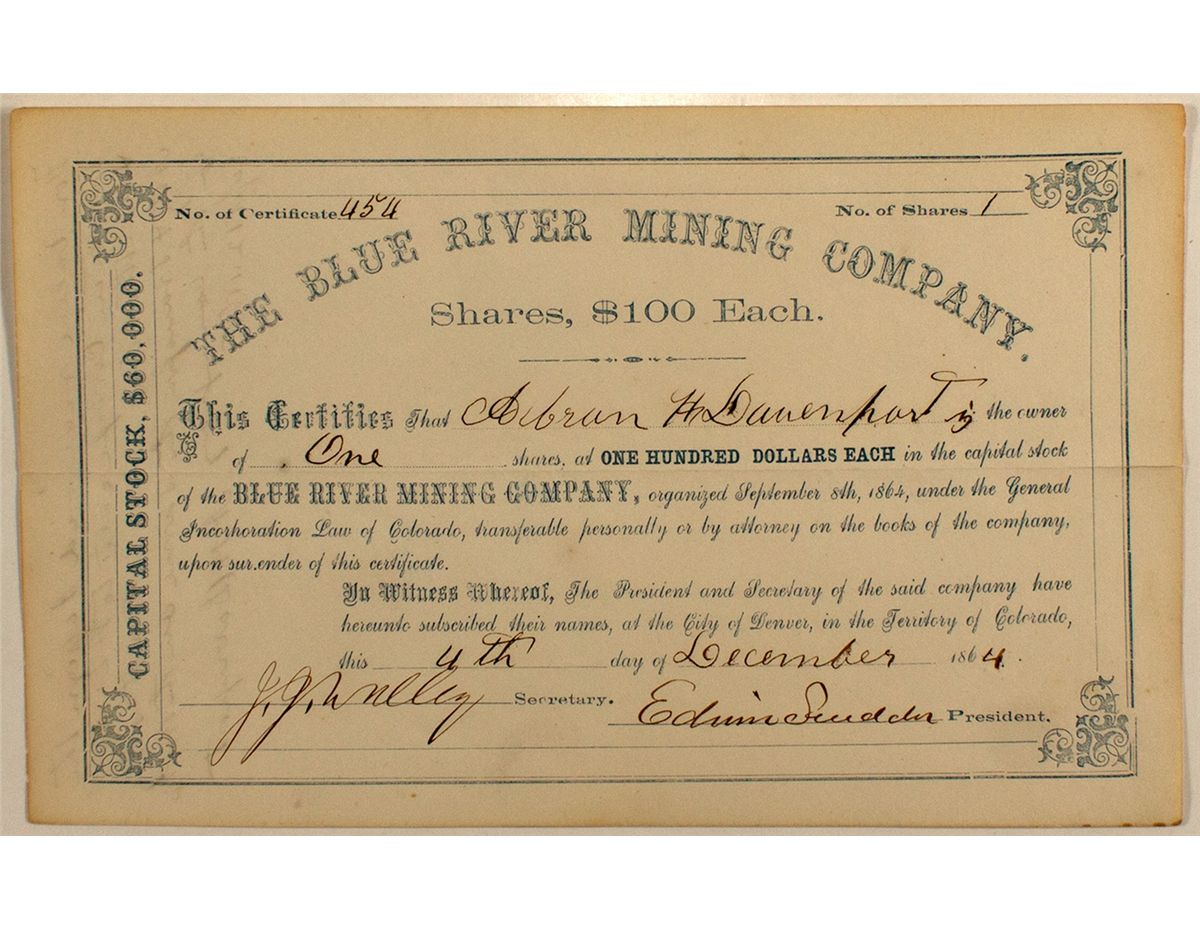 No. of Certificate 454
No. of Shares 1
THE BLUE RIVER MINING COMPANY.
Shares, $100 Each.
CAPITAL STOCK, $60,000.
This Certifies That H Davenport is the owner
of One shares, at ONE HUNDRED DOLLARS EACH in the capital stock
of the BLUE RIVER MINING COMPANY, organized September 8th, 1864, under the General
Incorhoration Law of Colorado, transferable personally or by attorney on the books of the company,
upon sur.ender of this certificate.
In Witness Whereof, The President and Secretary of the said company have
hereunto subscribed their names, at the City of Denver, in the Territory of Colorado,
this 4th day of December 1864.
Secretary.
Edwin Scudder President.